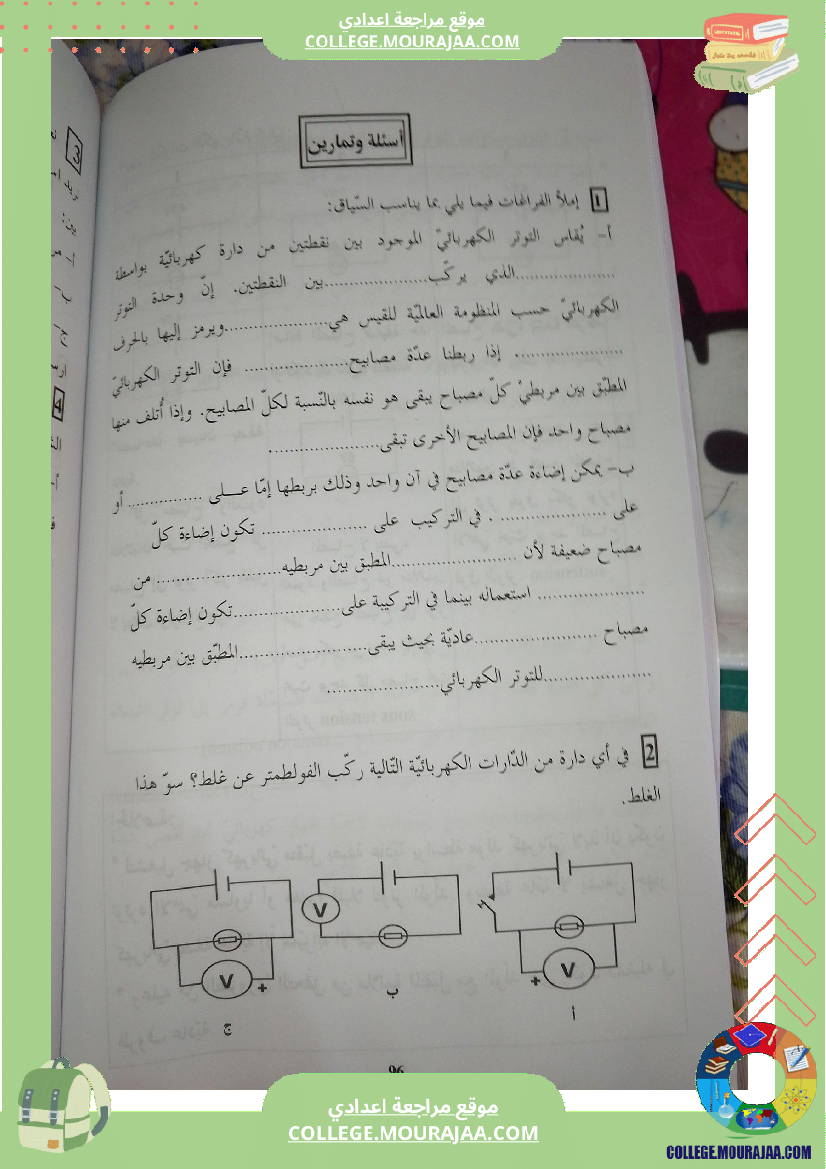 موقع مراجعة اعدادي
COLLEGE.MOURAJAA.COM
أسئلة وتمارين
1 إملأ الفراغات فيما يلي بما يناسب السّياق:
أ- يُقاس التوتر الكهربائيّ الموجود بين نقطتين من دارة كهربائيّة بواسطة
....................الذي يركّب....................بين النقطتين. إنّ وحدة التوتر
الكهربائيّ حسب المنظومة العالميّة للقيس هي....................ويرمز إليها بالحرف
..................... إذا ربطنا عدّة مصابيح.................... فإن التوتر الكهربائيّ
المطبّق بين مربطيْ كلّ مصباح يبقى هو نفسه بالنّسبة لكلّ المصابيح. وإذا أُتلف منها
مصباح واحد فإن المصابيح الأخرى تبقى.....................
ب- يمكن إضاءة عدّة مصابيح في آن واحد وذلك بربطها إمّا عــلى ............... أو
على .................... . في التركيب على .................... تكون إضاءة كلّ
مصباح ضعيفة لأن ........................المطبق بين مربطيه........................ من
.................... استعماله بينما في التركيبة على....................تكون إضاءة كلّ
مصباح ........................عاديّة بحيث يبقى........................المطبّق بين مربطيه
....................للتوتر الكهربائي.....................
2 في أي دارة من الدّارات الكهربائيّة التّالية ركّب الفولطمتر عن غلط؟ سوّ هذا
الغلط.
V V V
+ +
أ ب ج
96
موقع مراجعة اعدادي
COLLEGE.MOURAJAA.COM
COLLEGE.MOURAJAA.COM